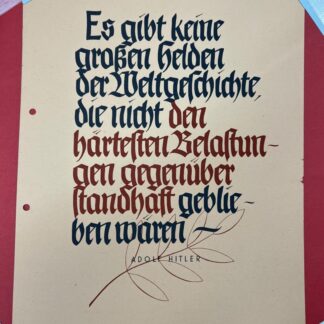 Es gibt keine
großen Helden
der Weltgeschichte,
die nicht den
härtesten Belastun-
gen gegenüber
standhaft geblie-
ben wären —
ADOLF HITLER